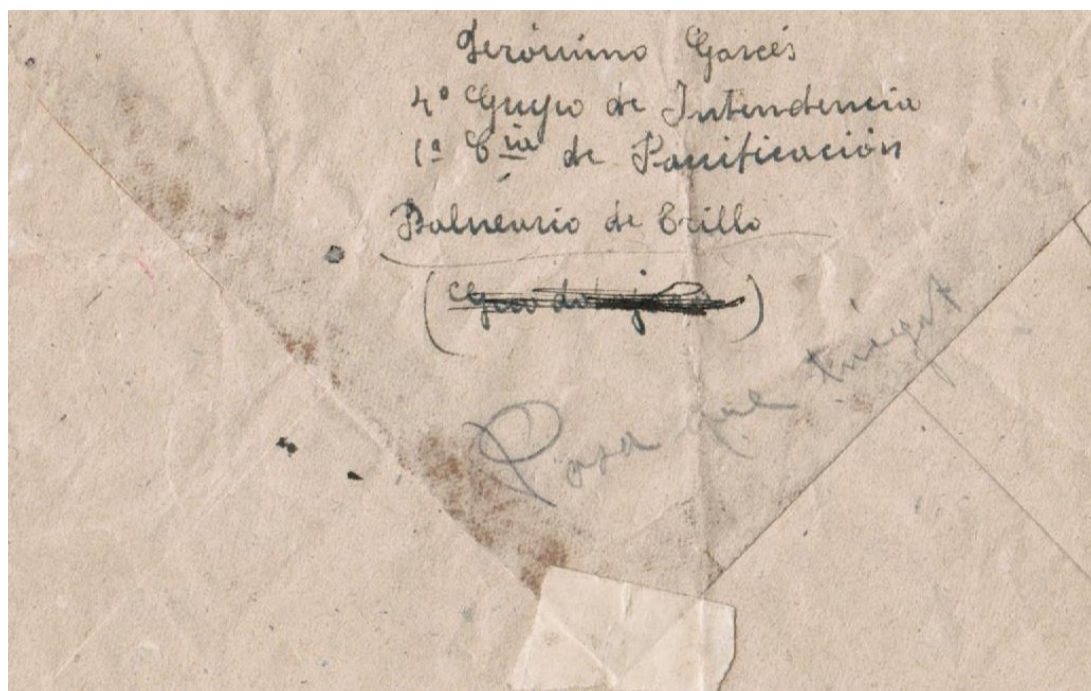 Gerónimo Garcés
4º Grupo de Intendencia
1ª Cía de Panificación
Balneario de Trillo
(Guadalajara)
Para que